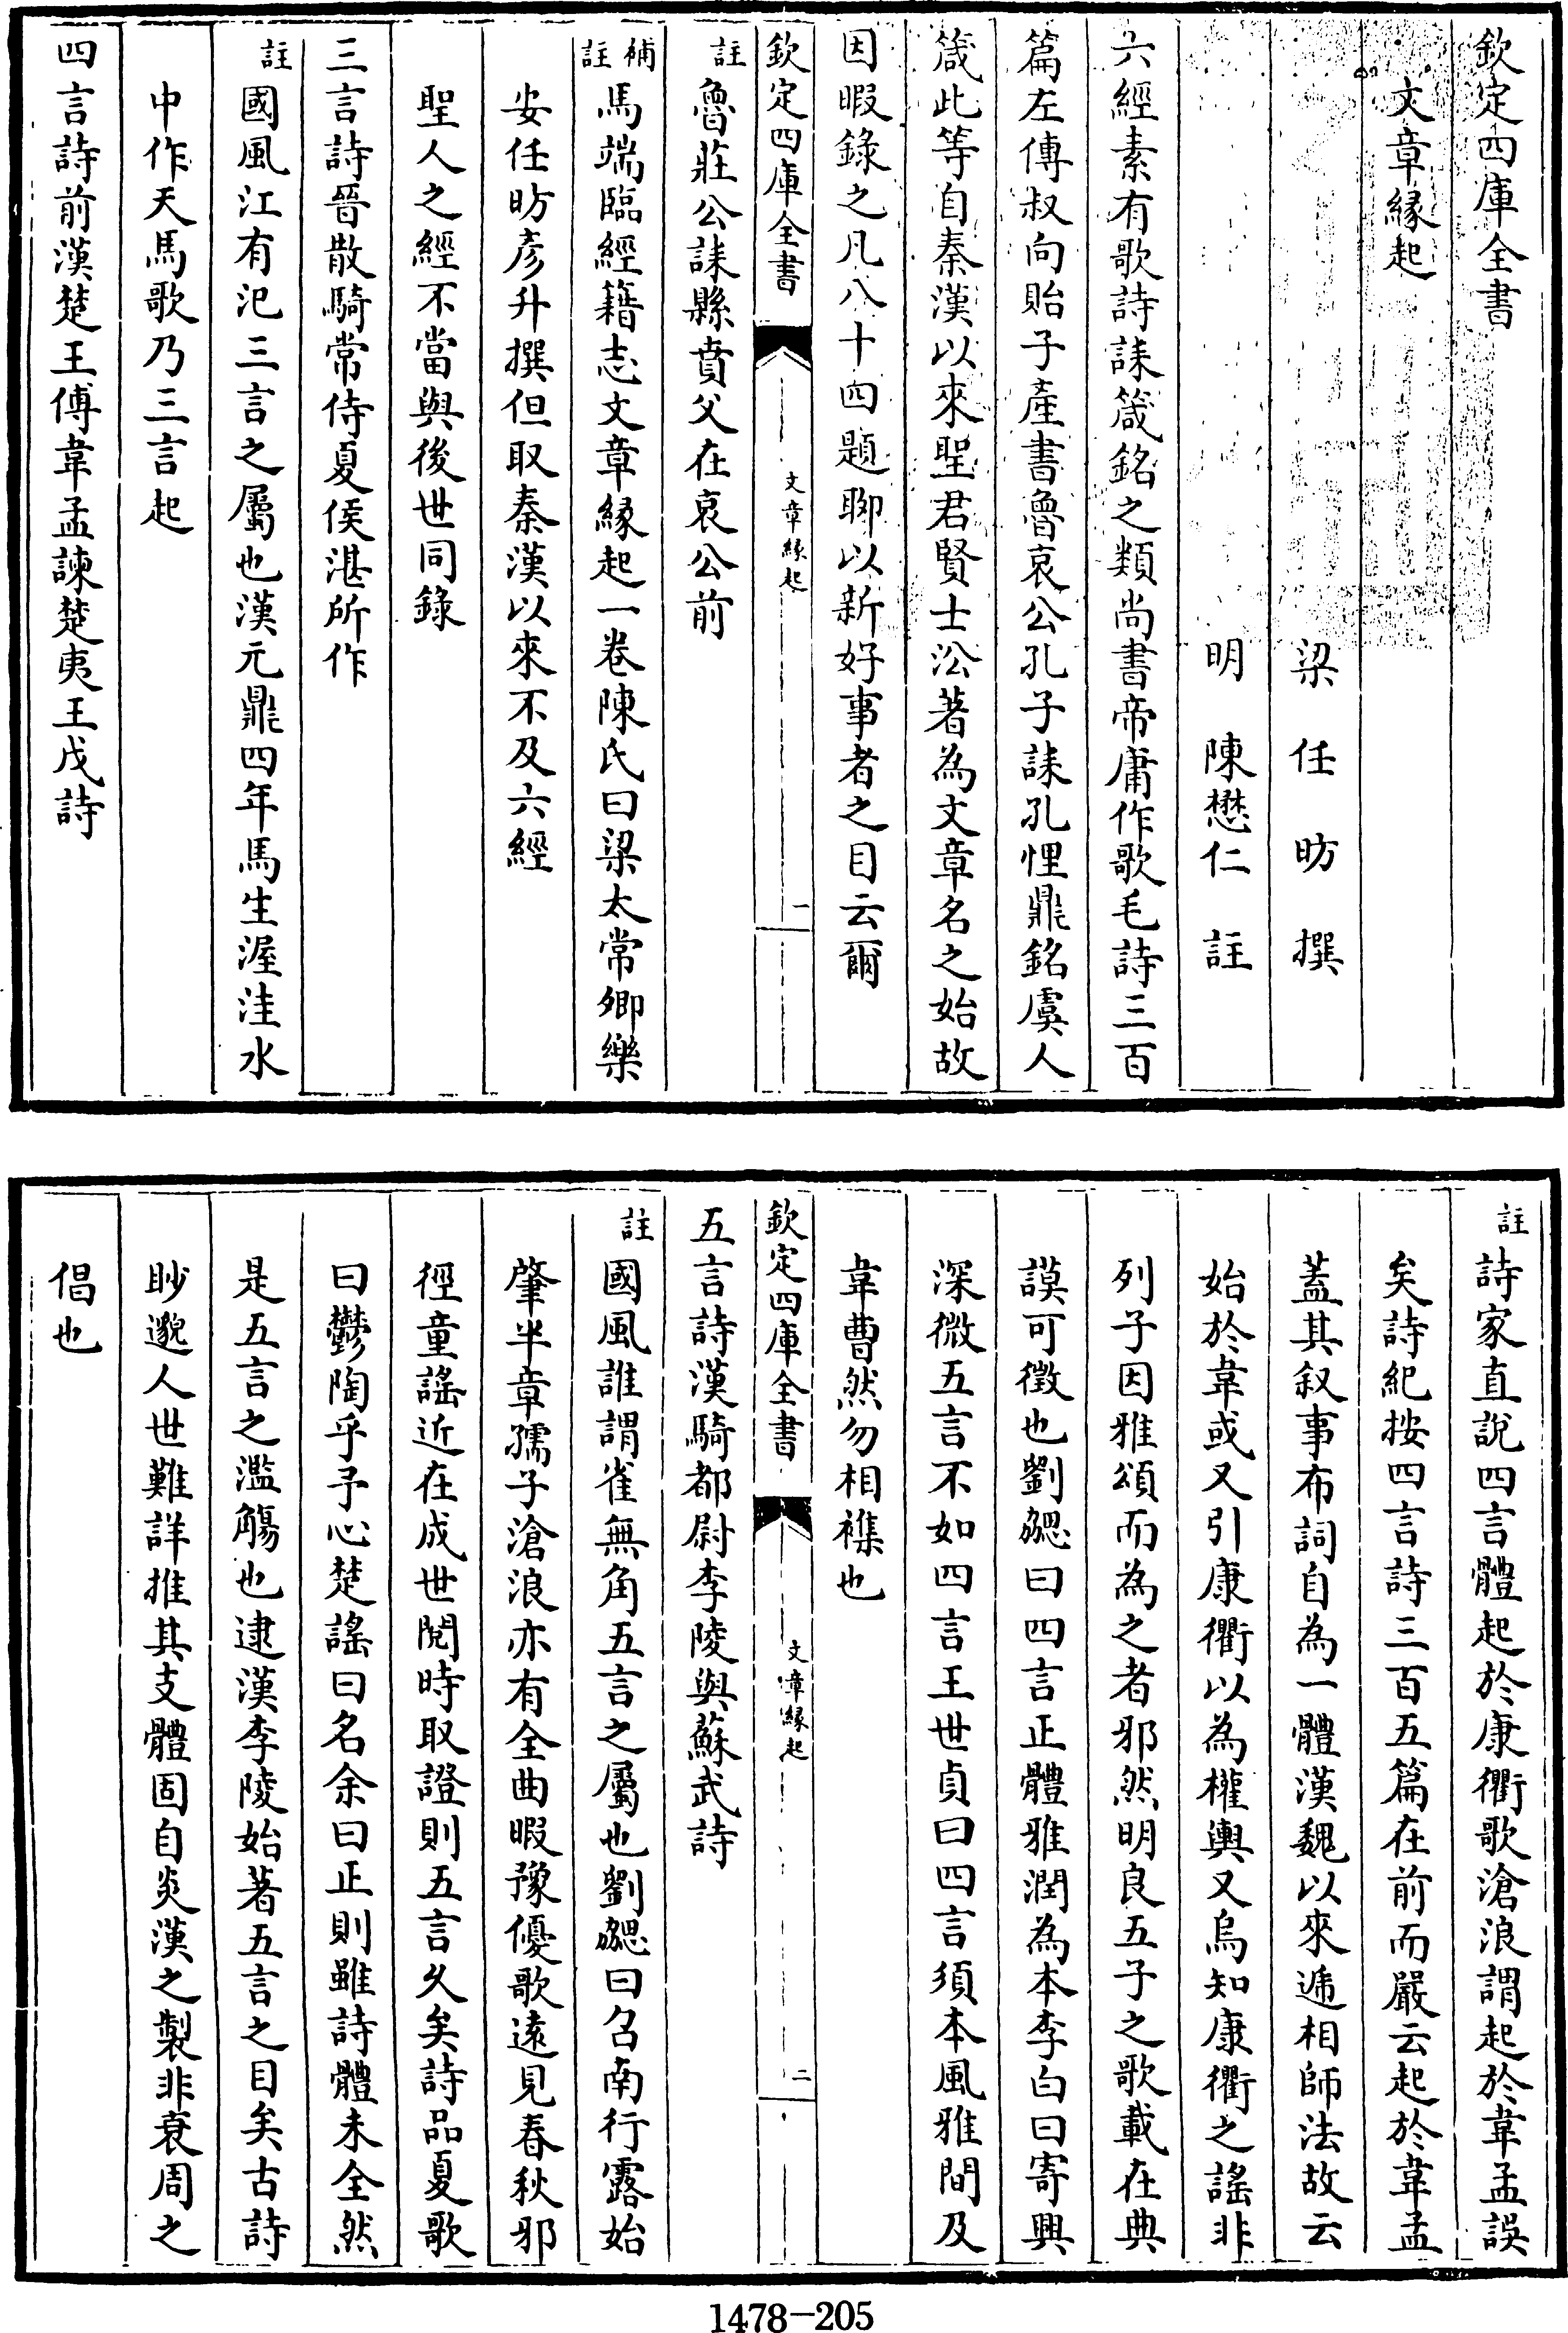 欽定四庫全書
文章縁起
梁任昉撰
明陳懋仁註
六經素有歌詩誄箴銘之類尚書帝庸作歌毛詩三百
篇左傳叔向貽子產書魯哀公孔子誄孔悝鼎銘虞人
箴此等自秦漢以來聖君賢士沿著為文章名之始故
因暇錄之凡八十四題聊以新好事者之目云爾
欽定四庫全書
文章縁起
一
註魯莊公誄縣賁父在哀公前
補註馬端臨經籍志文章縁起一卷陳氏曰梁太常卿樂
安任昉彥升撰但取秦漢以來不及六經
聖人之經不當與後世同錄
三言詩晉散騎常侍夏侯湛所作
註國風江有汜三言之屬也漢元鼎四年馬生渥洼水
中作天馬歌乃三言起
四言詩前漢楚王傅韋孟諫楚夷王戊詩
註詩家直説四言體起於康衢歌滄浪謂起於韋孟誤
矣詩紀按四言詩三百五篇在前而嚴云起於韋孟
蓋其叙事布詞自為一體漢魏以來遞相師法故云
始於韋或又引康衢以為權輿又烏知康衢之謠非
列子因雅頌而為之者邪然明良五子之歌載在典
謨可徵也劉勰曰四言正體雅潤為本李白曰寄興
深微五言不如四言王世貞曰四言須本風雅間及
韋曹然勿相襍也
欽定四庫全書
文章縁起
二
五言詩漢騎都尉李陵與蘇武詩
註國風誰謂雀無角五言之屬也劉勰曰召南行露始
肇半章孺子滄浪亦有全曲暇豫優歌遠見春秋邪
徑童謠近在成世閱時取證則五言久矣詩品夏歌
曰鬱陶乎予心楚謠曰名余曰正則雖詩體未全然
是五言之濫觴也逮漢李陵始著五言之目矣古詩
眇邈人世難詳推其支體固自炎漢之製非衰周之
倡也
1478-205